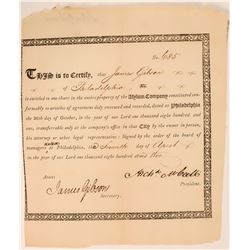 No. 685
THIS is to Certify, that James Gibson
of Philadelphia
is entitled to one share in the entire property of the Asylum Company constituted conformably
to articles of agreement duly executed and recorded, dated at Philadelphia
the 26th day of October, in the year of our Lord one thousand eight hundred and
one, transferable only at the company's office in that City by the owner in person,
or by his attorney or other legal representative: Signed by order of the board of
managers at Philadelphia, the Seventh day of April
in the year of our Lord one thousand eight hundred and two
Attest
James Gibson
Secretary.
President.